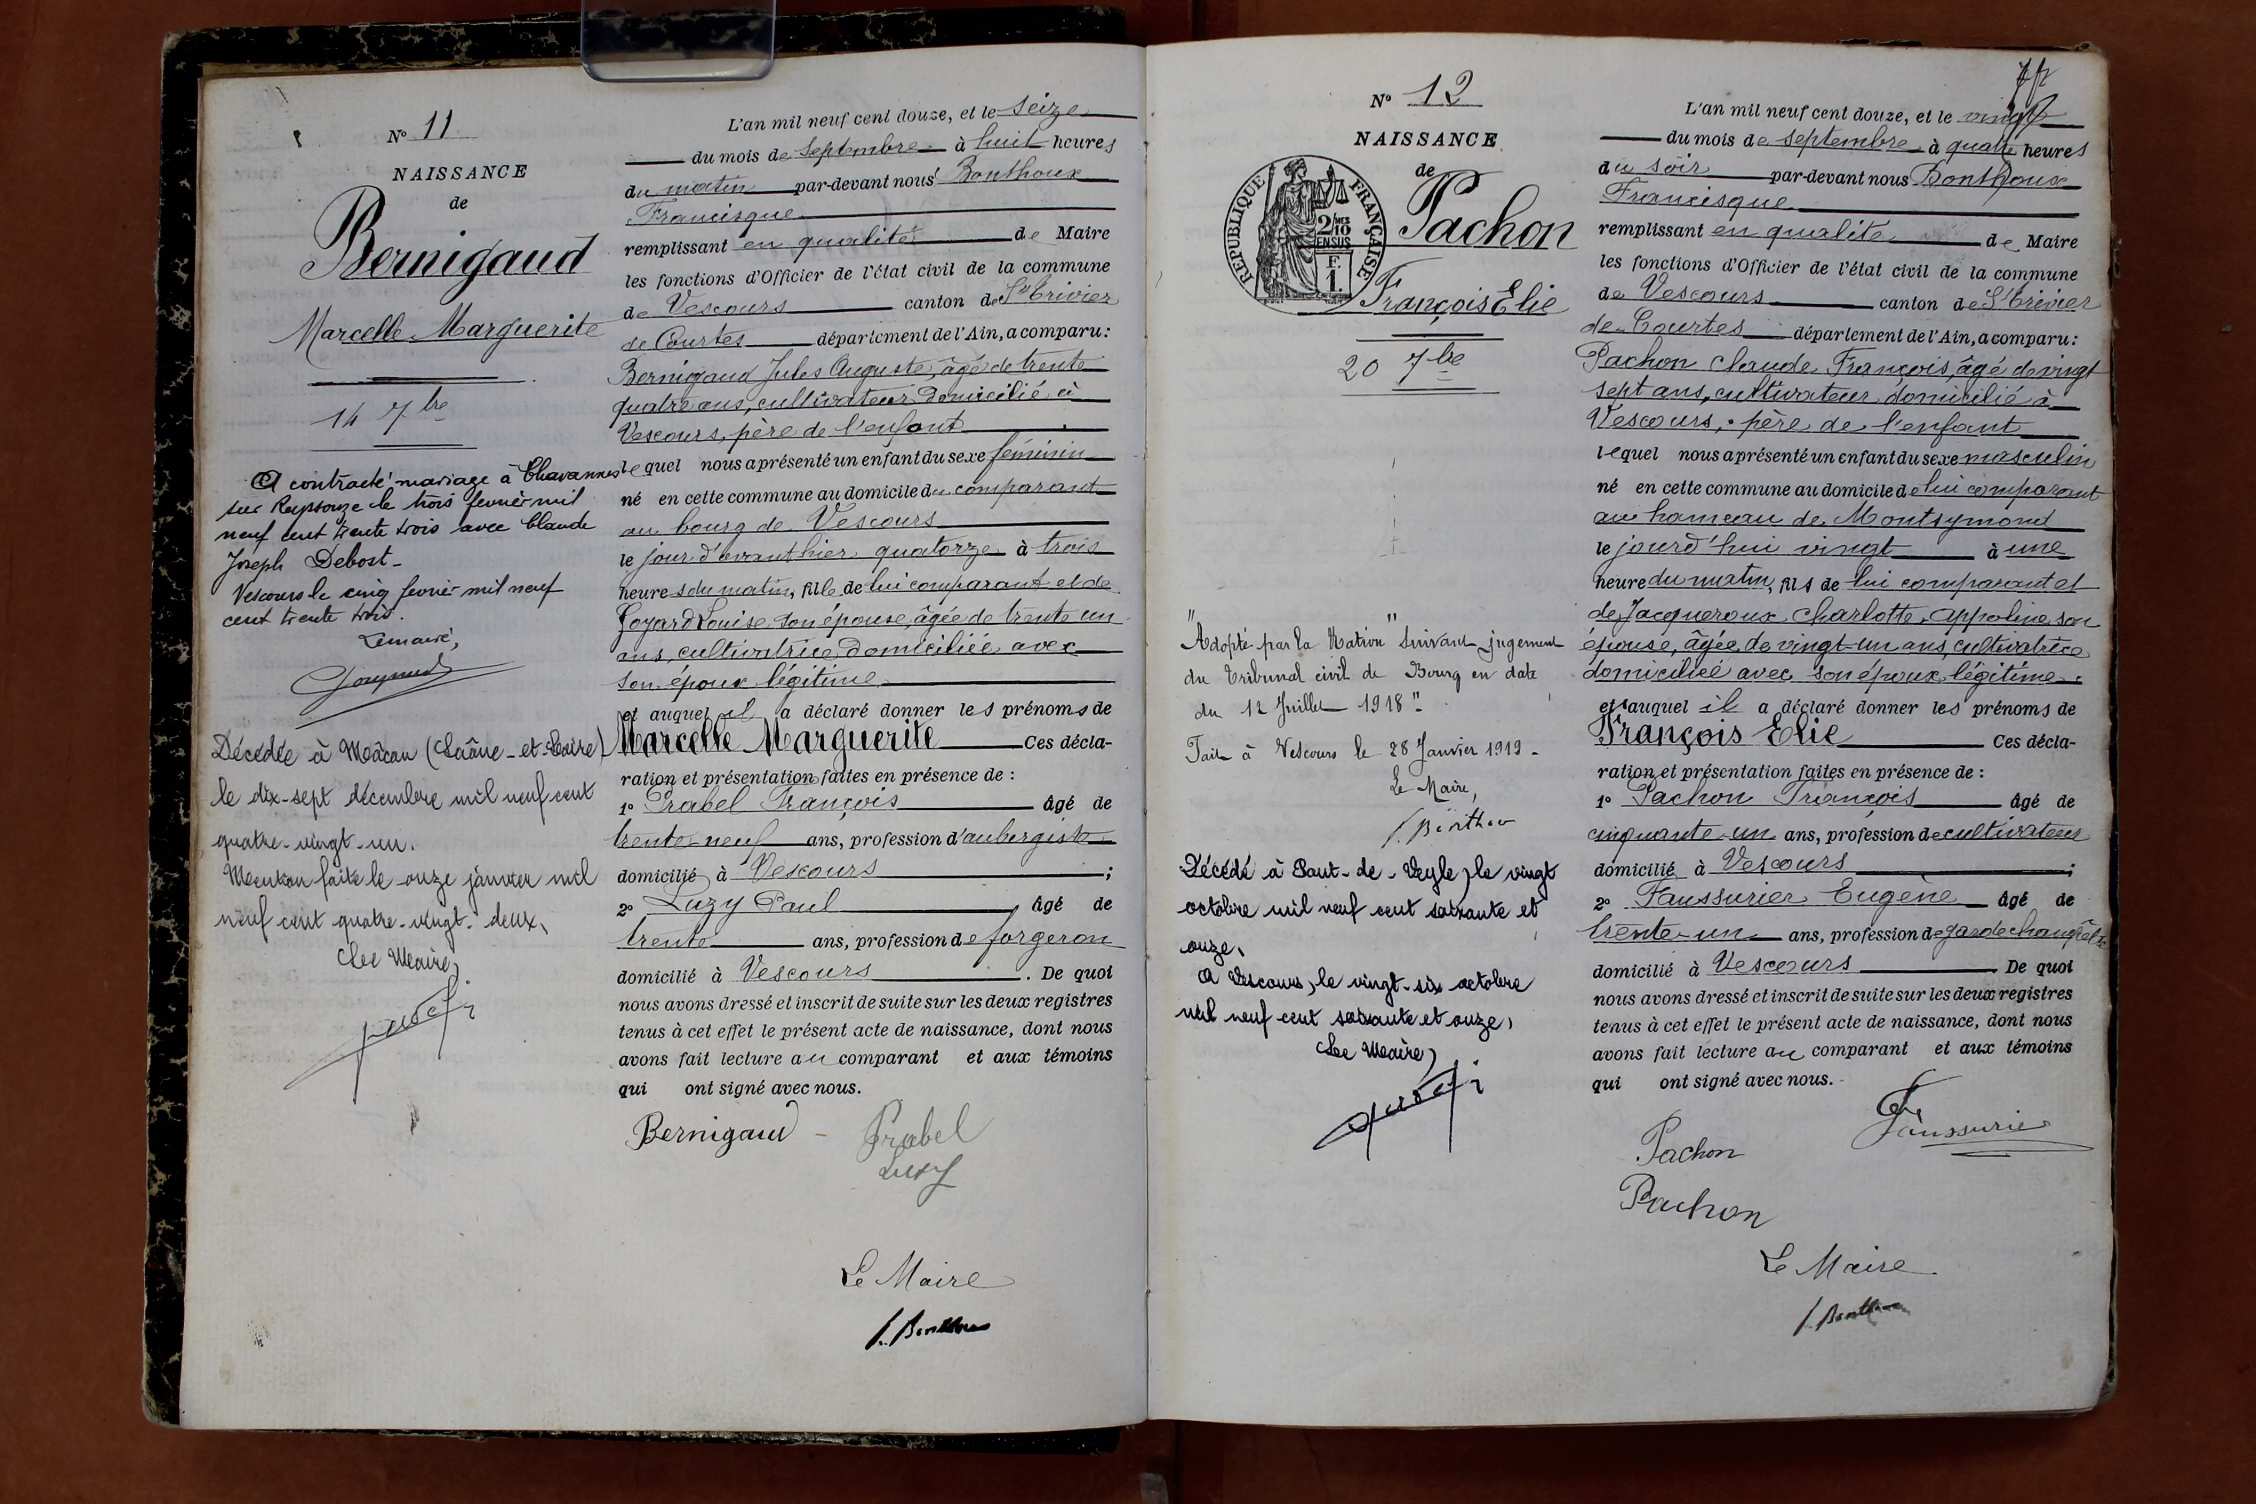 N° 11
NAISSANCE
de
Bernigaud
Marcelle Marguerite
14 7bre
A contracté mariage à Chavannes
sur Reyssouze le trois fevrier mil
neuf cent trente trois avec Claude
Joseph Debost-
Vescours le cinq fevrier mil neuf
cent trente trois.
Le maire,
Décédée à Mâcon (Saône-et-Loire)
le dix-sept décembre mil neuf cent
quatre-vingt-un.
Mention faite le onze janvier mil
neuf cent quatre-vingt-deux,
Le Maire,
L'an mil neuf cent douze, et le seize
du mois de Septembre à huit heures
du matin par-devant nous Bonthoux
Francisque
remplissant en qualité de Maire
les fonctions d'Officier de l'état civil de la commune
de Vescours canton de St Trivier
de Courtes département de l'Ain, a comparu:
Bernigaud Jules Auguste, âgé de trente
quatre ans, cultivateur domicilié à
Vescours, père de l'enfant
lequel nous a présenté un enfant du sexe féminin
né en cette commune au domicile du comparant
au bourg de Vescours
le jour d'avant hier quatorze à trois
heures du matin, fille de lui comparant et de
Goyard Louise son épouse, âgée de trente un
ans, cultivatrice, domiciliée avec
son époux légitime
et auquel il a déclaré donner les prénoms de
Marcelle Marguerite Ces décla-
ration et présentation faites en présence de :
1° Prabel François âgé de
trente-neuf ans, profession d'aubergiste
domicilié à Vescours ;
2° Luzy Paul âgé de
trente ans, profession de forgeron
domicilié à Vescours . De quoi
nous avons dressé et inscrit de suite sur les deux registres
tenus à cet effet le présent acte de naissance, dont nous
avons fait lecture au comparant et aux témoins
qui ont signé avec nous.
Bernigaud - Prabel
Luzy
Le Maire
F. Bonthoux
N° 12
NAISSANCE
de
RÉPUBLIQUE FRANÇAISE
2/10 MES
EN SUS
F.
1.
Pachon
François Elie
20 7bre
"Adopté par la Nation" suivant jugement
du Tribunal civil de Bourg en date
du 12 Juillet 1918"
Fait à Vescours le 28 Janvier 1919-
Le Maire,
F. Bonthoux
Décédé à Pont-de-Veyle, le vingt
octobre mil neuf cent soixante et
onze,
A Vescours, le vingt-six octobre
mil neuf cent soixante et onze,
Le Maire,
L'an mil neuf cent douze, et le vingt
du mois de septembre à quatre heures
du soir par-devant nous Bonthoux
Francisque
remplissant en qualité de Maire
les fonctions d'Officier de l'état civil de la commune
de Vescours canton de St Trivier
de Courtes département de l'Ain, a comparu:
Pachon Claude François, âgé de vingt
sept ans, cultivateur, domicilié à
Vescours, père de l'enfant
lequel nous a présenté un enfant du sexe masculin
né en cette commune au domicile de lui comparant
au hameau de Montsymond
le jourd'hui vingt à une
heure du matin, fils de lui comparant et
de Jacqueroux Charlotte Appoline son
épouse, âgée de vingt-un ans, cultivatrice
domiciliée avec son époux légitime.
et auquel il a déclaré donner les prénoms de
François Elie Ces décla-
ration et présentation faites en présence de :
1° Pachon François âgé de
cinquante-un ans, profession de cultivateur
domicilié à Vescours ;
2° Faussurier Eugène âgé de
trente-un ans, profession de garde champêtre
domicilié à Vescours . De quoi
nous avons dressé et inscrit de suite sur les deux registres
tenus à cet effet le présent acte de naissance, dont nous
avons fait lecture au comparant et aux témoins
qui ont signé avec nous.
Faussurier
Pachon
Pachon
Le Maire
F. Bonthoux